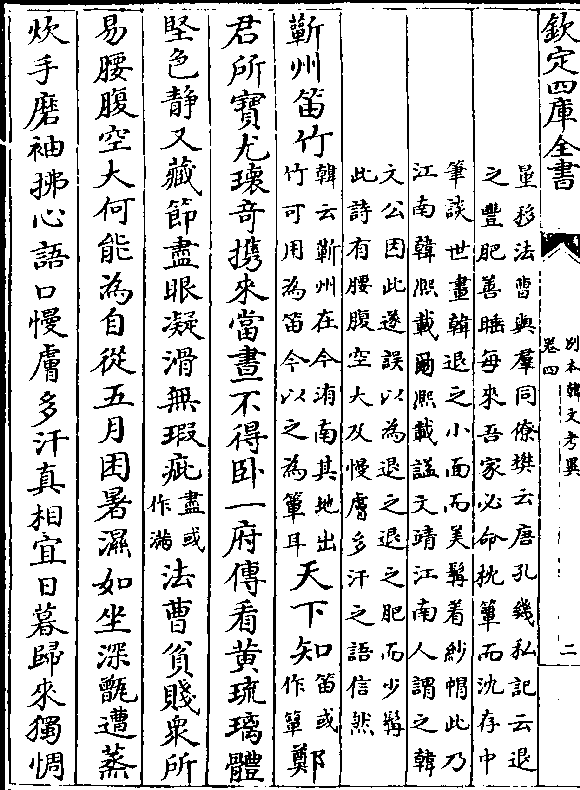 欽定四庫全書
別本韓文考異
卷四
二
量移法曹與羣同僚樊云唐孔幾私記云退
之豐肥善睡每來吾家必命枕簟而沈存中
筆談世畫韓退之小面而美髯着紗帽此乃
江南韓熙載爾熙載諡文靖江南人謂之韓
文公因此遂誤以為退之退之肥而少髯
此詩有腰腹空大及慢膚多汗之語信然
蘄州笛竹韓云蘄州在今洧南其地出竹可用為笛今以之為簟耳天下知笛或作簟鄭
君所寶尤瓌奇攜來當晝不得卧一府傳看黄琉璃體
堅色静又藏節盡眼凝滑無瑕疵盡或作滿法曹貧賤衆所
易腰腹空大何能為自從五月困暑濕如坐深甑遭蒸
炊手磨袖拂心語口慢膚多汗真相宜日暮歸來獨惆